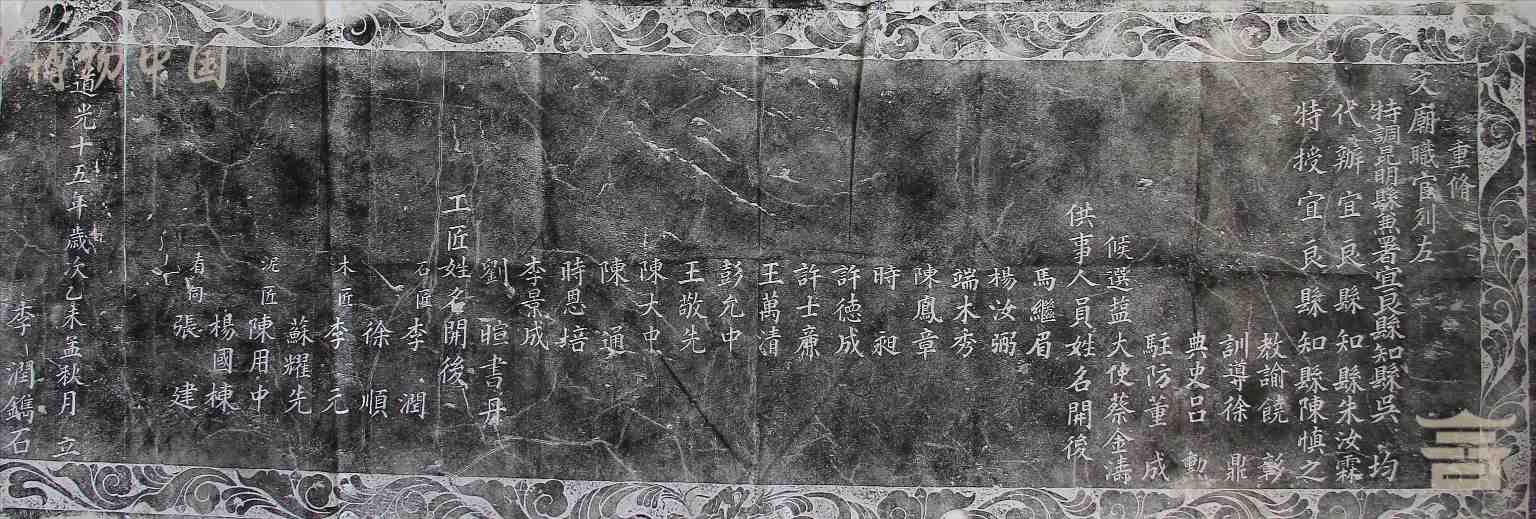 重脩
文廟職官列左
特調昆明縣兼署宜良縣知縣吳均
代辦宜良縣知縣朱汝霖
特授宜良縣知縣陳慎之
教諭饒彰
訓導徐鼎
典史呂勳
駐防董成
候選藍大使蔡金濤
供事人員姓名開後
馬繼眉
楊汝弼
端木秀
陳鳳章
時昶
許德成
許士廉
王萬清
彭允中
王敬先
陳大中
陳通
時恩培
李景成
劉暄書丹
工匠姓名開後
石匠李潤
徐順
木匠李元
蘇耀先
泥匠陳用中
楊國棟
看伺張建
道光十五年歲次乙未孟秋月立
李潤鐫石
博物中国